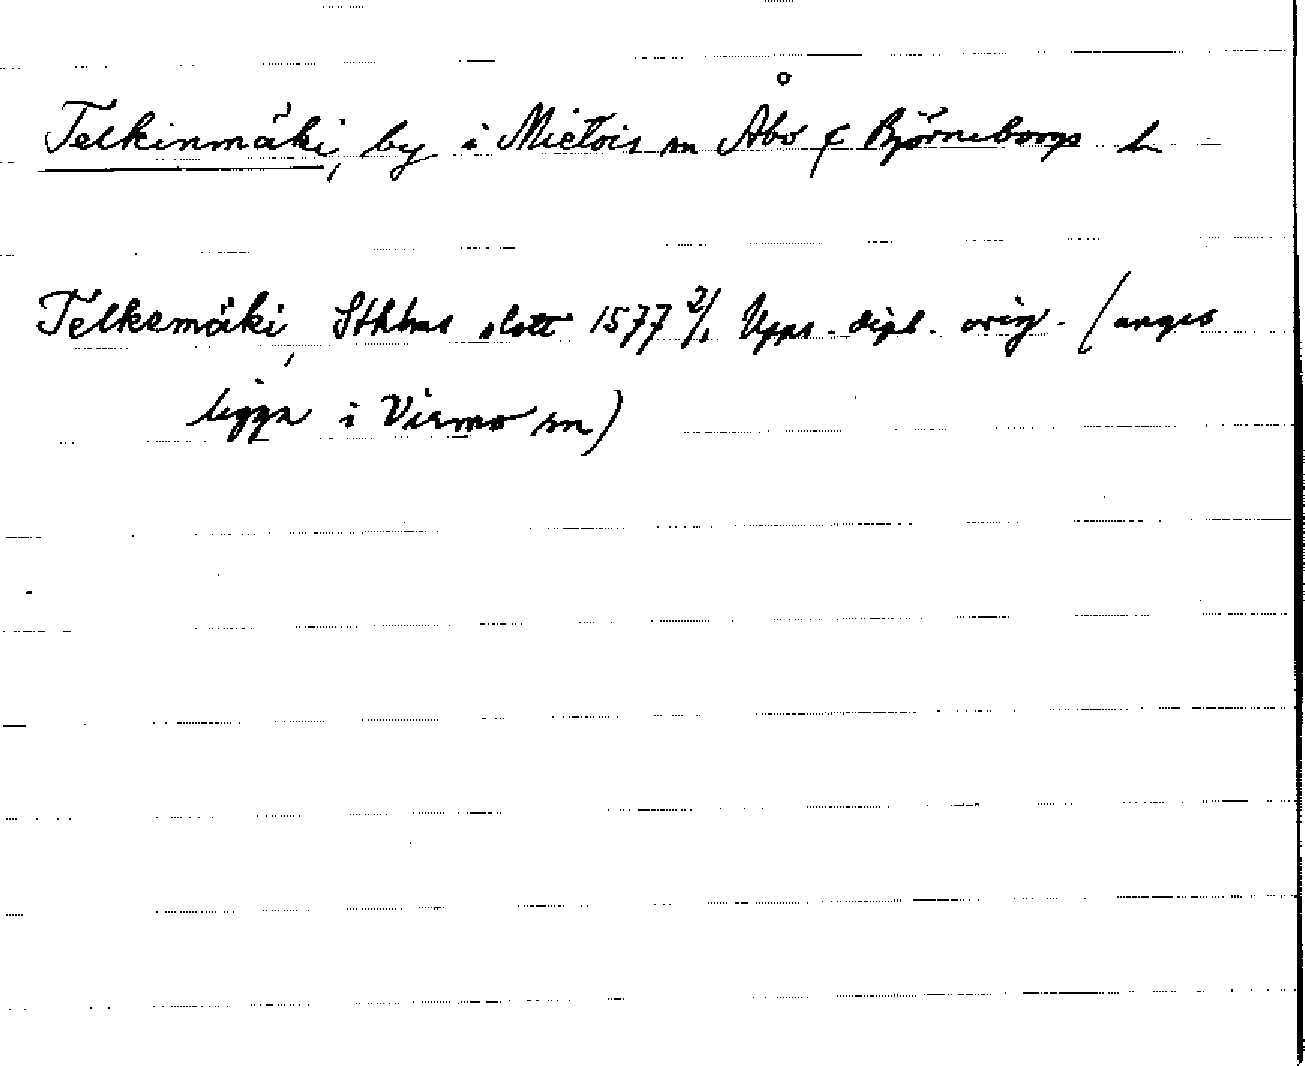 Telkinmäki, by i Mietois sn Åbo & Björneborgs l
Telkemäki, Sthlms slott 1577 2/1 Upps. dipl. orig. (anges
ligga i Virmo sn)